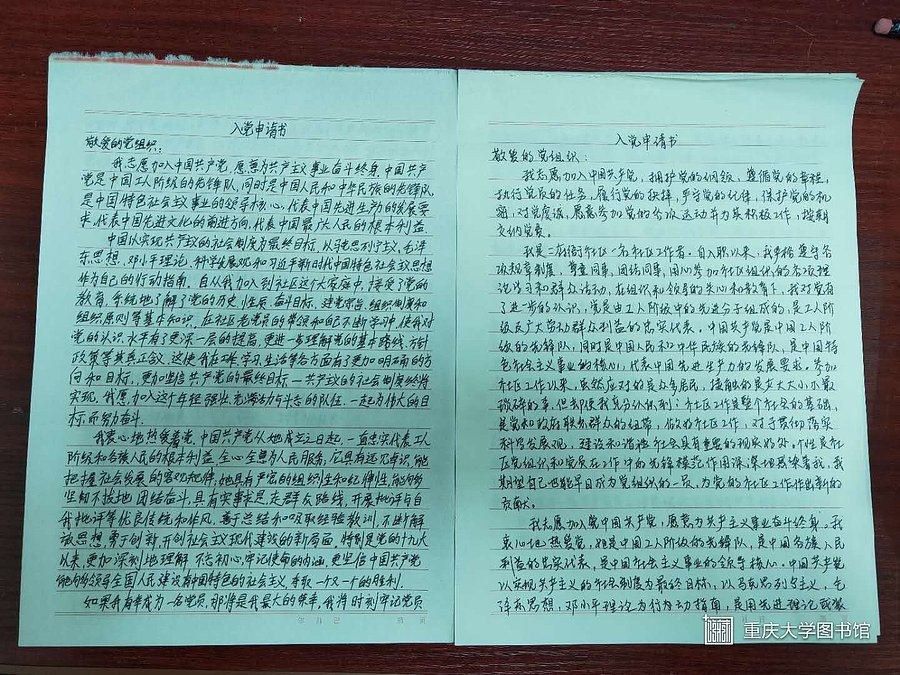 入党申请书
敬爱的党组织：
我志愿加入中国共产党，愿意为共产主义事业奋斗终身，中国共产
党是中国工人阶级的先锋队，同时是中国人民和中华民族的先锋队，
是中国特色社会主义事业的领导核心，代表中国先进生产力的发展要
求，代表中国先进文化的前进方向，代表中国最广大人民的根本利益
中国以实现共产主义的社会制度为最终目标，以马克思列宁主义、毛泽
东思想、邓小平理论、科学发展观和习近平新时代中国特色社会主义思想
作为自己的行动指南。自从我加入到社区这个大家庭中，接受了党的
教育，系统地了解了党的历史、性质、奋斗目标、建党宗旨、组织制度和
组织原则等基本知识。在社区老党员的带领和自己不断学习中，使我对
党的认识水平有了更深一层的提高，更进一步理解党的基本路线、方针
政策等其真正含义。这使我在工作、学习、生活等各方面有了更加明确的方
向和目标，更加坚信共产党的最终目标—共产主义的社会制度终将
实现，我愿加入这个年轻强壮，充满活力与斗志的队伍，一起为伟大的目
标而努力奋斗。
我衷心地热爱着党，中国共产党从她成立之日起，一直忠实代表工人
阶级和各族人民的根本利益，全心全意为人民服务，它具有远见卓识，能
把握社会发展的客观规律，她具有严密的组织性和纪律性，能够
坚韧不拔地团结奋斗，具有实事求是，走群众路线，开展批评与自
我批评等优良传统和作风，善于总结和吸取经验教训，不断解
放思想，勇于创新，开创社会主义现代建设的新局面，特别是党的十九大
以来，更加深刻地理解"不忘初心，牢记使命"的内涵，更坚信中国共产党
能够领导全国人民建设有中国特色的社会主义夺取一次又一次的胜利。
如果我有幸成为一名党员，那将是我最大的荣幸，我将时刻牢记党员
年 月 日 第 页
入党申请书
敬爱的党组织：
我志愿加入中国共产党，拥护党的纲领，遵循党的章程，
执行党员的任务，履行党的抉择，严守党的纪律，保护党的机
密，对党虔诚，愿意参加党的各次运动并为其积极工作，按期
交纳党费。
我是 街 社区一名社区工作者。自入职以来，我严格遵守各
项规章制度，尊重同事，团结同事，用心参加社区组织的各项理
论学习和群众活动，在组织和领导的关心和教育下，我对党有
了进一步的认识，党是由工人阶级中的先进分子组成的，是工人阶
级及广大劳动群众利益的忠实代表，中国共产党是中国工人阶
级的先锋队，同时是中国人民和中华民族的先锋队，是中国特
色社会主义事业的核心，代表中国先进生产力的发展要求。参加
社区工作以来，虽然应对的是众多居民，接触的是大大小小最
琐碎的事，但却使我充分认识到：社区工作是整个社会的基础，
是党和政府联系群众的纽带，做好社区工作，对于贯彻落实
科学发展观，建设和谐社会具有重要的现实好处。个性是社
区党组织和党员在工作中的先锋模范作用深深地感染着我，我
期望自己也能早日成为党组织的一员，为党的社区工作作出新的
贡献。
我志愿加入党中国共产党，愿意为共产主义事业奋斗终身。我
衷心地热爱党，她是中国工人阶级的先锋队，是中国各族人民
利益的忠实代表，是中国社会主义事业的领导核心。中国共产党
以实现共产主义的社会制度为最终目标，以马克思列宁主义，毛
泽东思想，邓小平理论为行为动力指南，是用先进理论武装
重庆大学图书馆